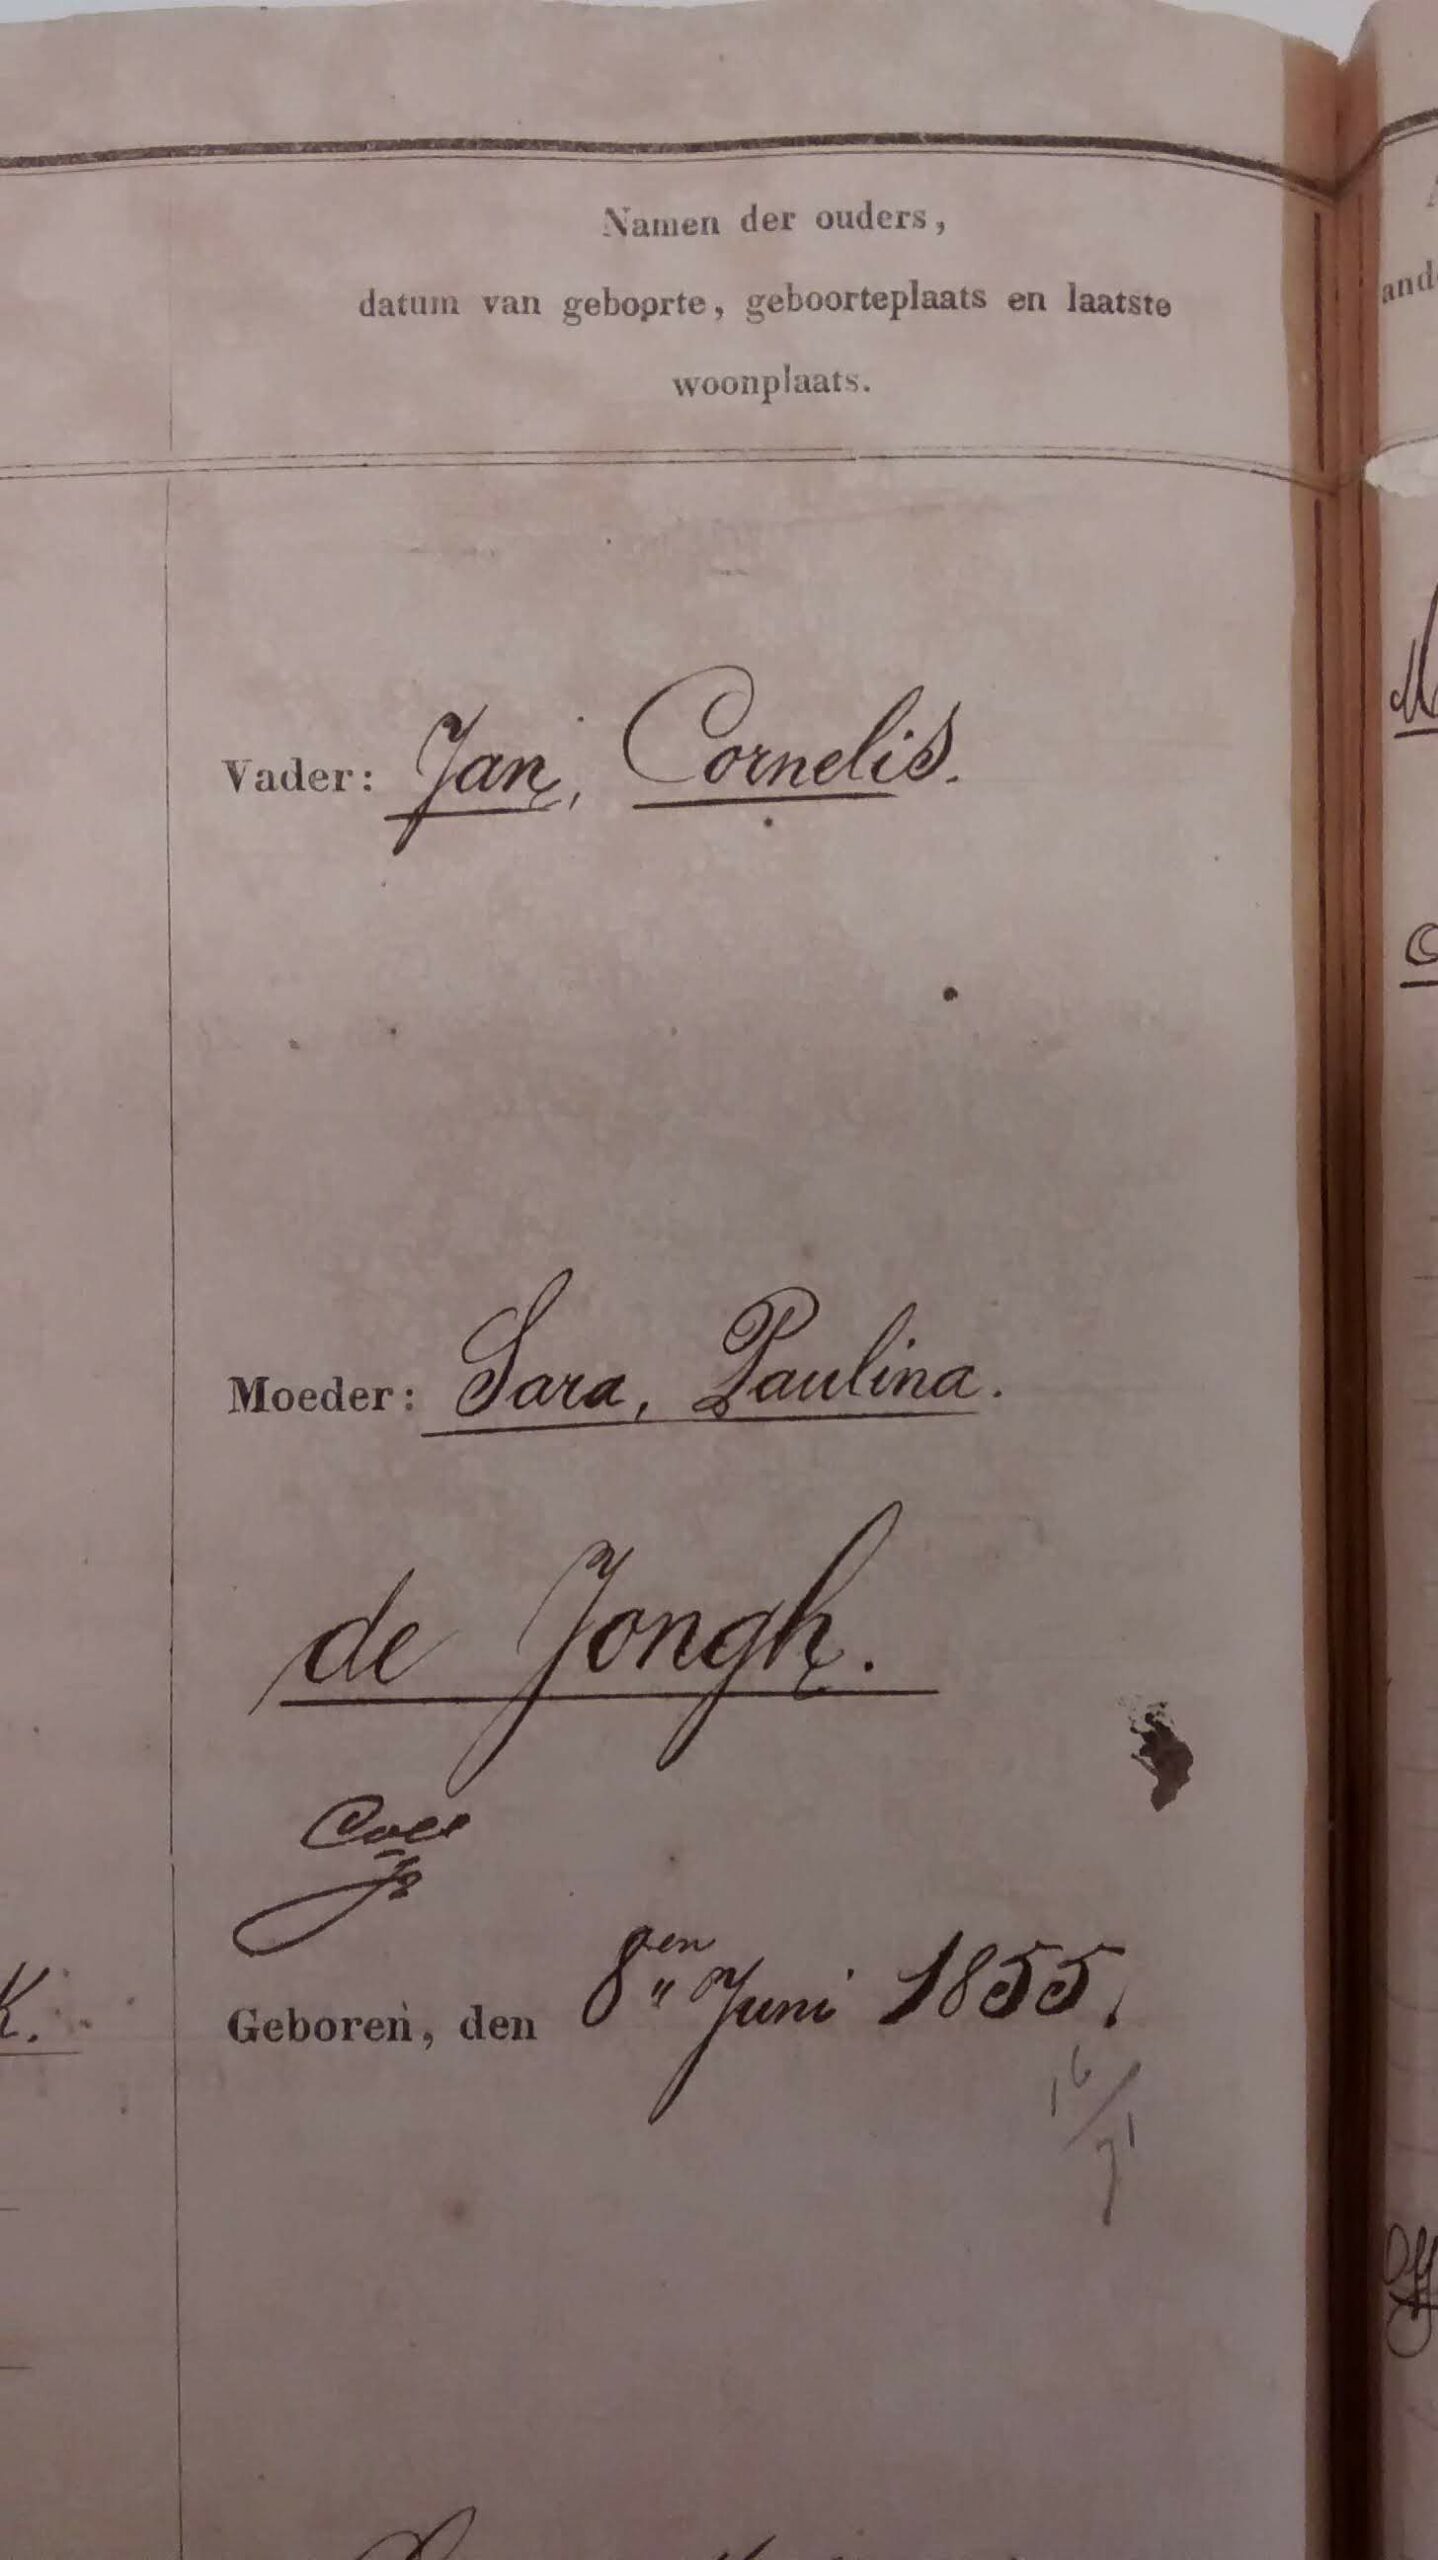 Namen der ouders,
datum van geboorte, geboorteplaats en laatste
woonplaats.
Vader: Jan, Cornelis.
Moeder: Sara, Paulina.
de Jongh.
Geboren, den 8en Juni 1855.
16/71